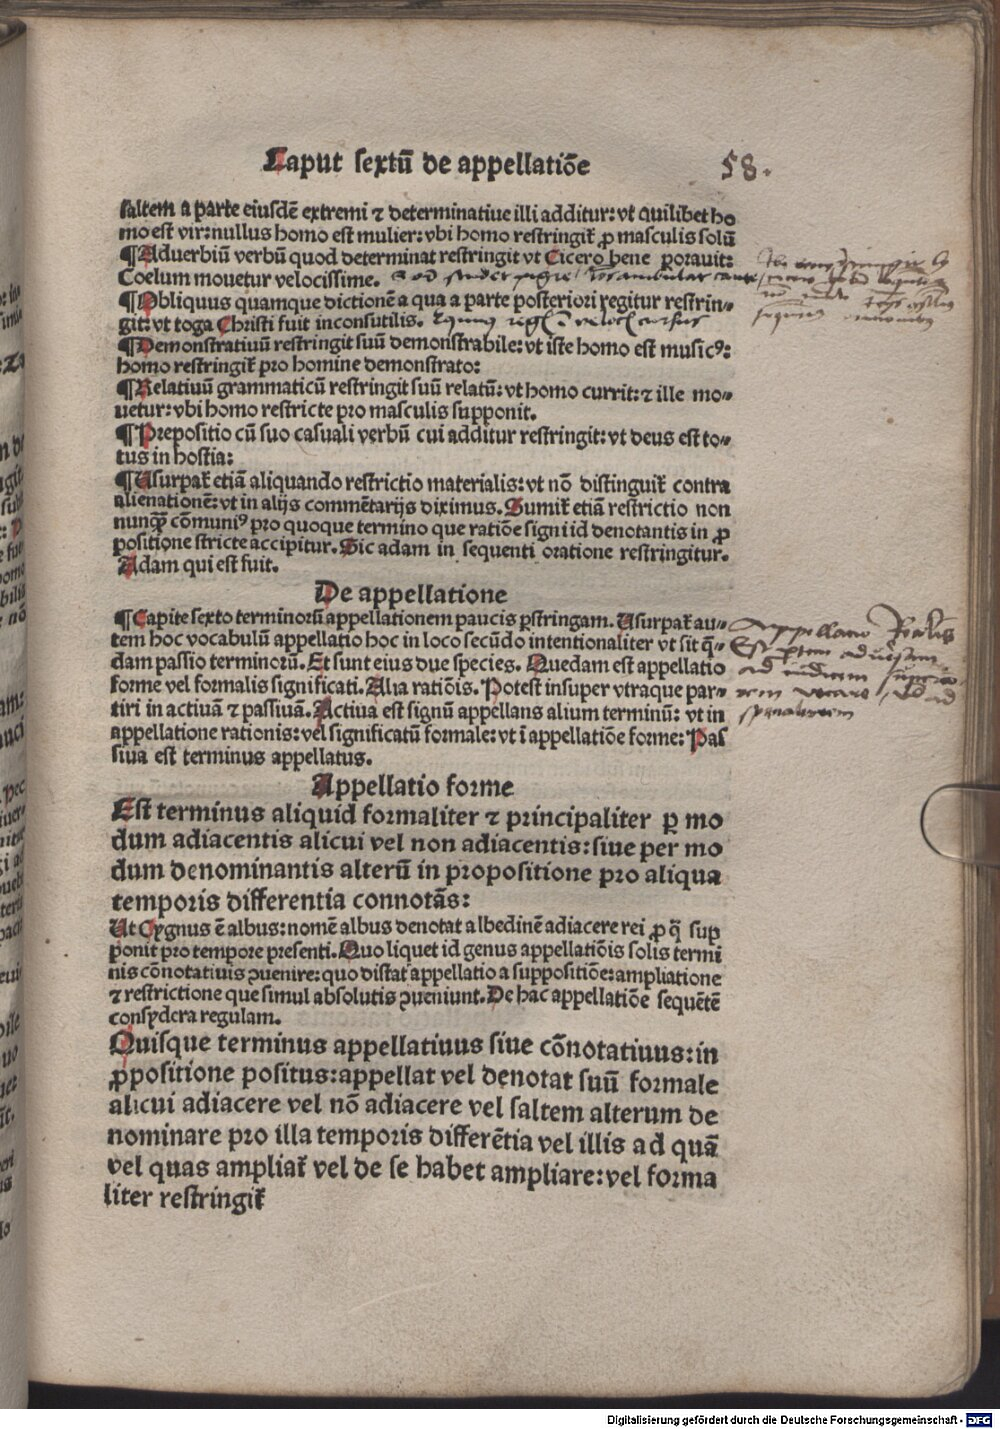 Caput sextū de appellatiōe
58.
saltem a parte eiusdē extremi ⁊ determinatiue illi additur: vt quilibet ho
mo est vir: nullus homo est mulier: vbi homo restringit̄ ꝓ masculis solū
¶ Aduerbiū verbū quod determinat restringit vt Cicero bene ꝑorauit:
Coelum mouetur velocissime.
¶ Obliquus quamque dictionē a qua a parte posteriori regitur restrin-
git: vt toga Christi fuit inconsutilis.
¶ Demonstratiuū restringit suū demonstrabile: vt iste homo est musicꝰ:
homo restringit̄ pro homine demonstrato:
¶ Relatiuū grammaticū restringit suū relatū: vt homo currit: ⁊ ille mo-
uetur: vbi homo restricte pro masculis supponit.
¶ Prepositio cū suo casuali verbū cui additur restringit: vt deus est to-
tus in hostia:
¶ Usurpat̄ etiā aliquando restrictio materialis: vt nō distinguit̄ contra
alienationē: vt in alijs commētarijs diximus. Sumit̄ etiā restrictio non
nunqꝫ cōmuniꝰ pro quoque termino que ratiōe signi id denotantis in ꝓ
positione stricte accipitur. Sic adam in sequenti oratione restringitur.
Adam qui est fuit.
De appellatione
¶ Capite sexto terminorū appellationem paucis ꝑstringam. Usurpat̄ au-
tem hoc vocabulū appellatio hoc in loco secūdo intentionaliter vt sit q̄-
dam passio terminorū. Et sunt eius due species. Quedam est appellatio
forme vel formalis significati. Alia ratiōis. Potest insuper vtraque par-
tiri in actiuā ⁊ passiuā. Actiua est signū appellans alium terminū: vt in
appellatione rationis: vel significatū formale: vt ī appellatiōe forme: Pas
siua est terminus appellatus.
Appellatio forme
Est terminus aliquid formaliter ⁊ principaliter ꝑ mo
dum adiacentis alicui vel non adiacentis: siue per mo
dum denominantis alterū in propositione pro aliqua
temporis differentia connotās:
Ut Cygnus ē albus: nomē albus denotat albedinē adiacere rei ꝓ q̄ sup
ponit pro tempore presenti. Quo liquet id genus appellatiōis solis termi
nis cōnotatiuis ꝯuenire: quo distat appellatio a suppositiōe: ampliatione
⁊ restrictione que simul absolutis ꝯueniunt. De hac appellatiōe sequētē
consydera regulam.
Quisque terminus appellatiuus siue cōnotatiuus: in
ꝓpositione positus: appellat vel denotat suū formale
alicui adiacere vel nō adiacere vel saltem alterum de
nominare pro illa temporis differētia vel illis ad quā
vel quas ampliat̄ vel de se habet ampliare: vel forma
liter restringit̄
Digitalisierung gefördert durch die Deutsche Forschungsgemeinschaft - DFG